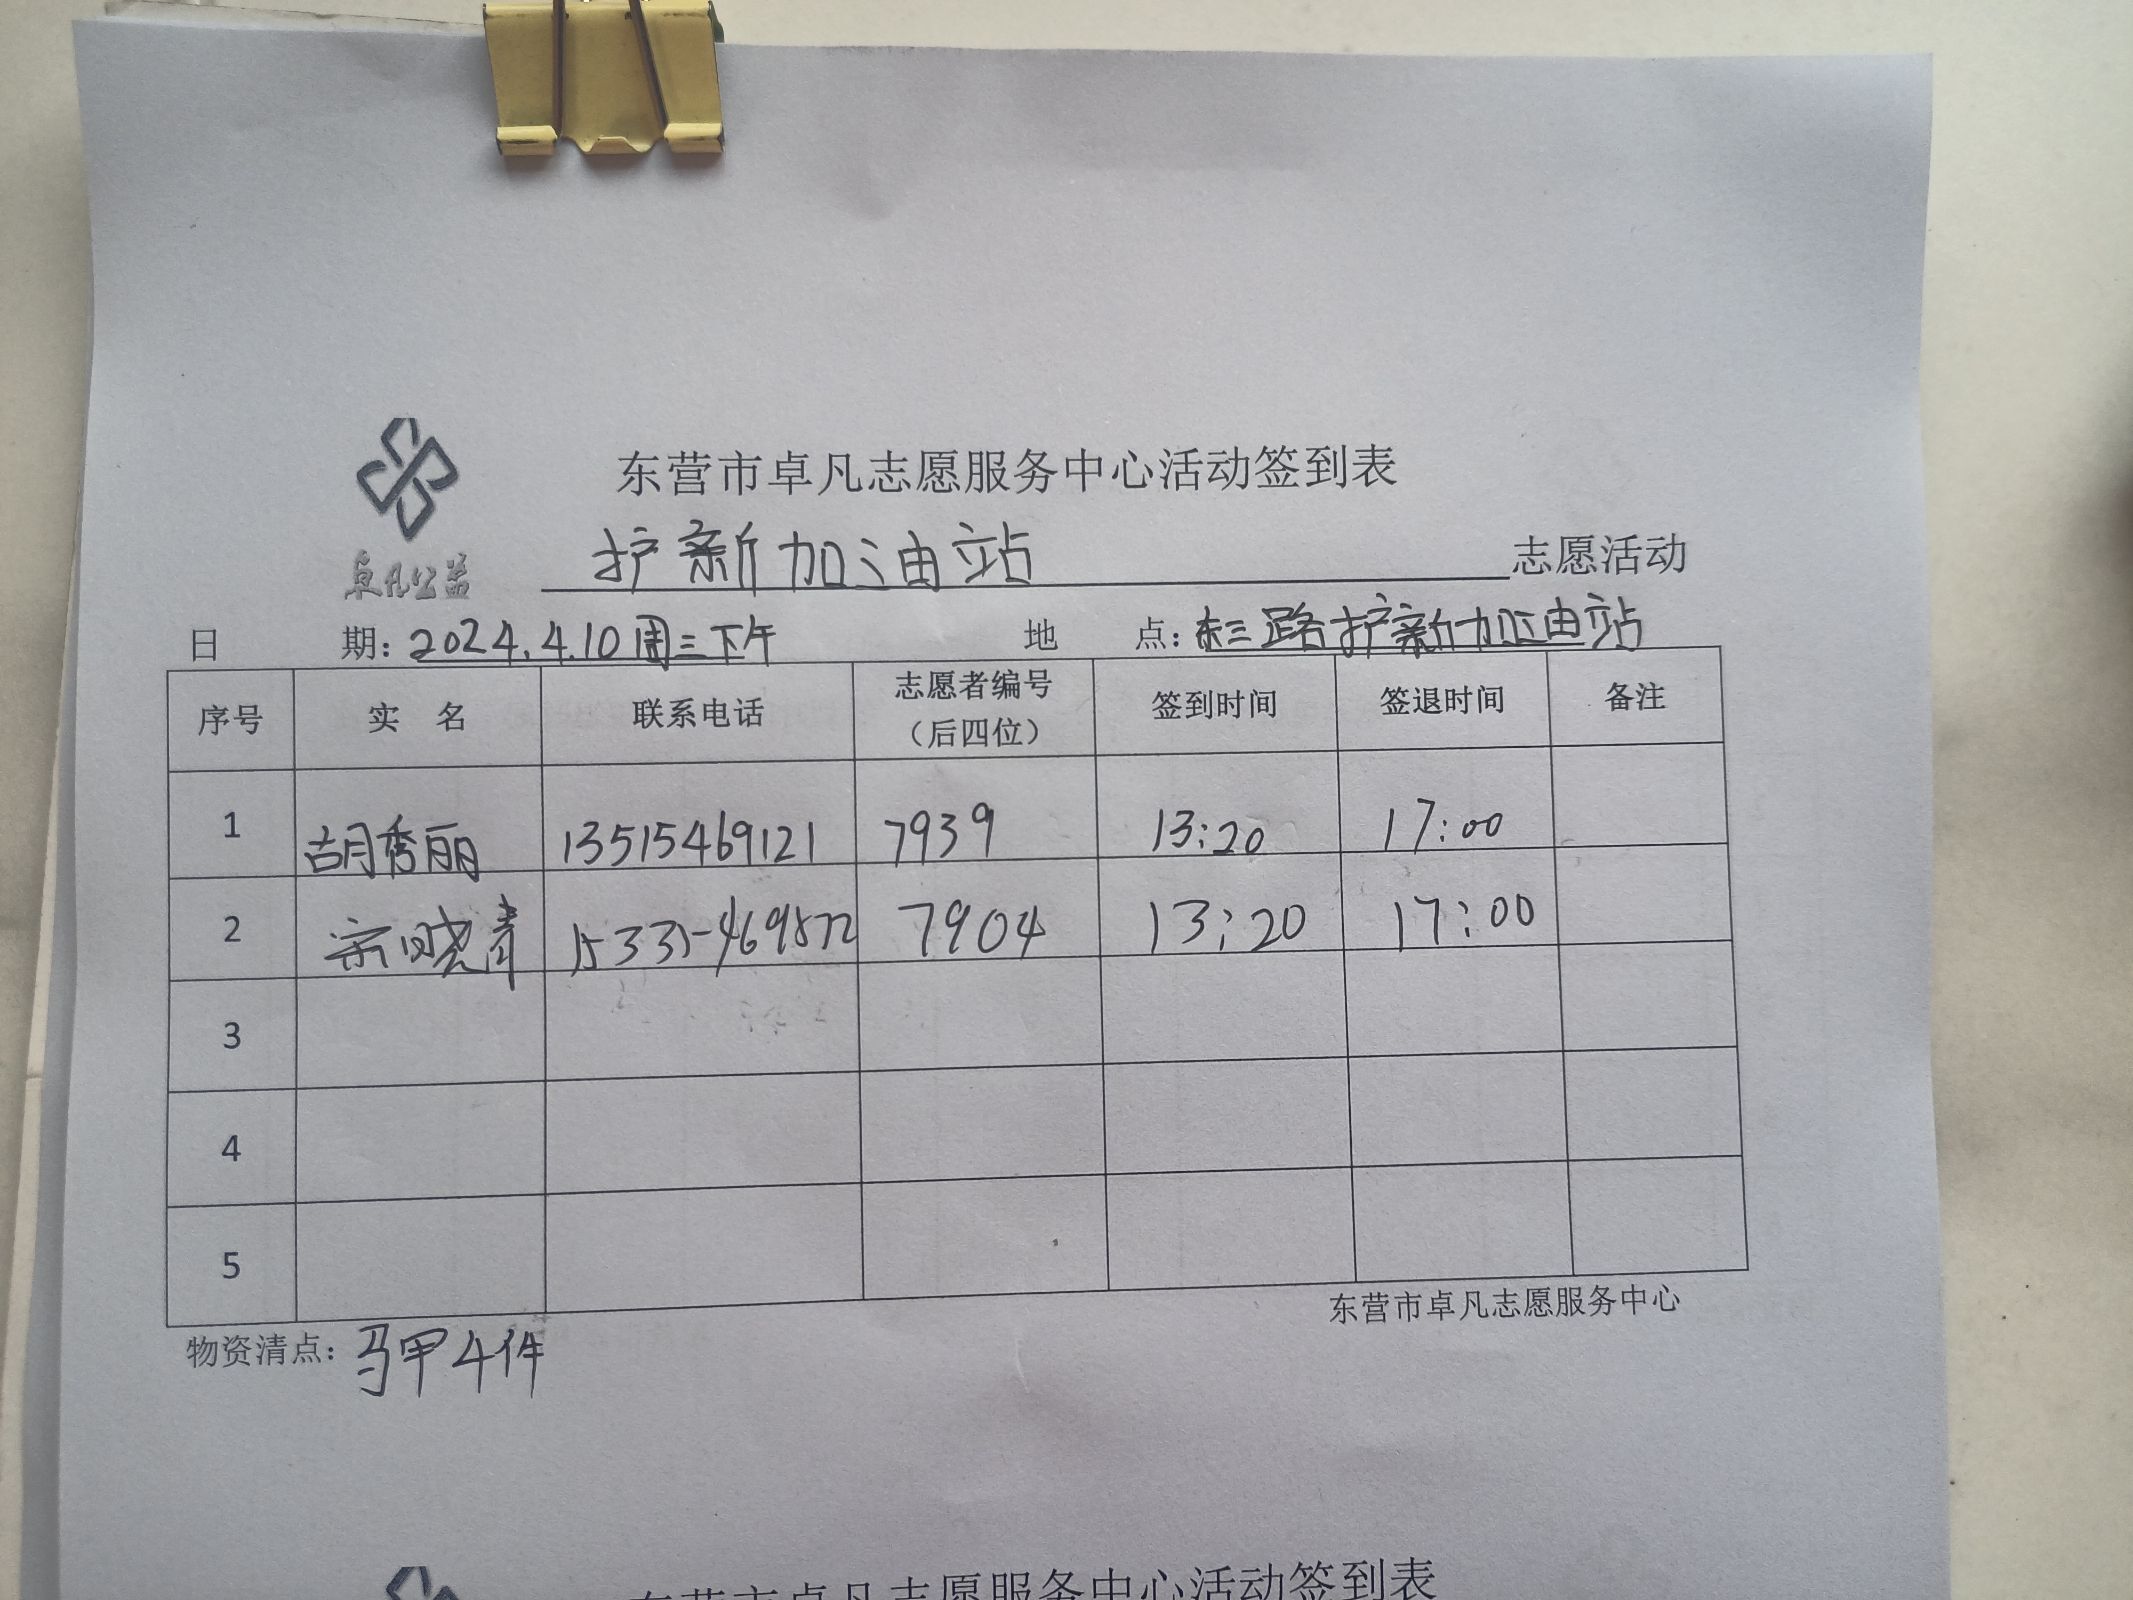 东营市卓凡志愿服务中心活动签到表
卓凡公益
护新加油站 志愿活动
日 期：2024.4.10周三下午 地 点：东三路护新加油站
序号 实 名 联系电话 志愿者编号（后四位） 签到时间 签退时间 备注
1 胡秀丽 13515469121 7939 13:20 17:00
2 宗晓青 15335469572 7904 13:20 17:00
3
4
5
东营市卓凡志愿服务中心
物资清点：马甲4件
东营市卓凡志愿服务中心活动签到表